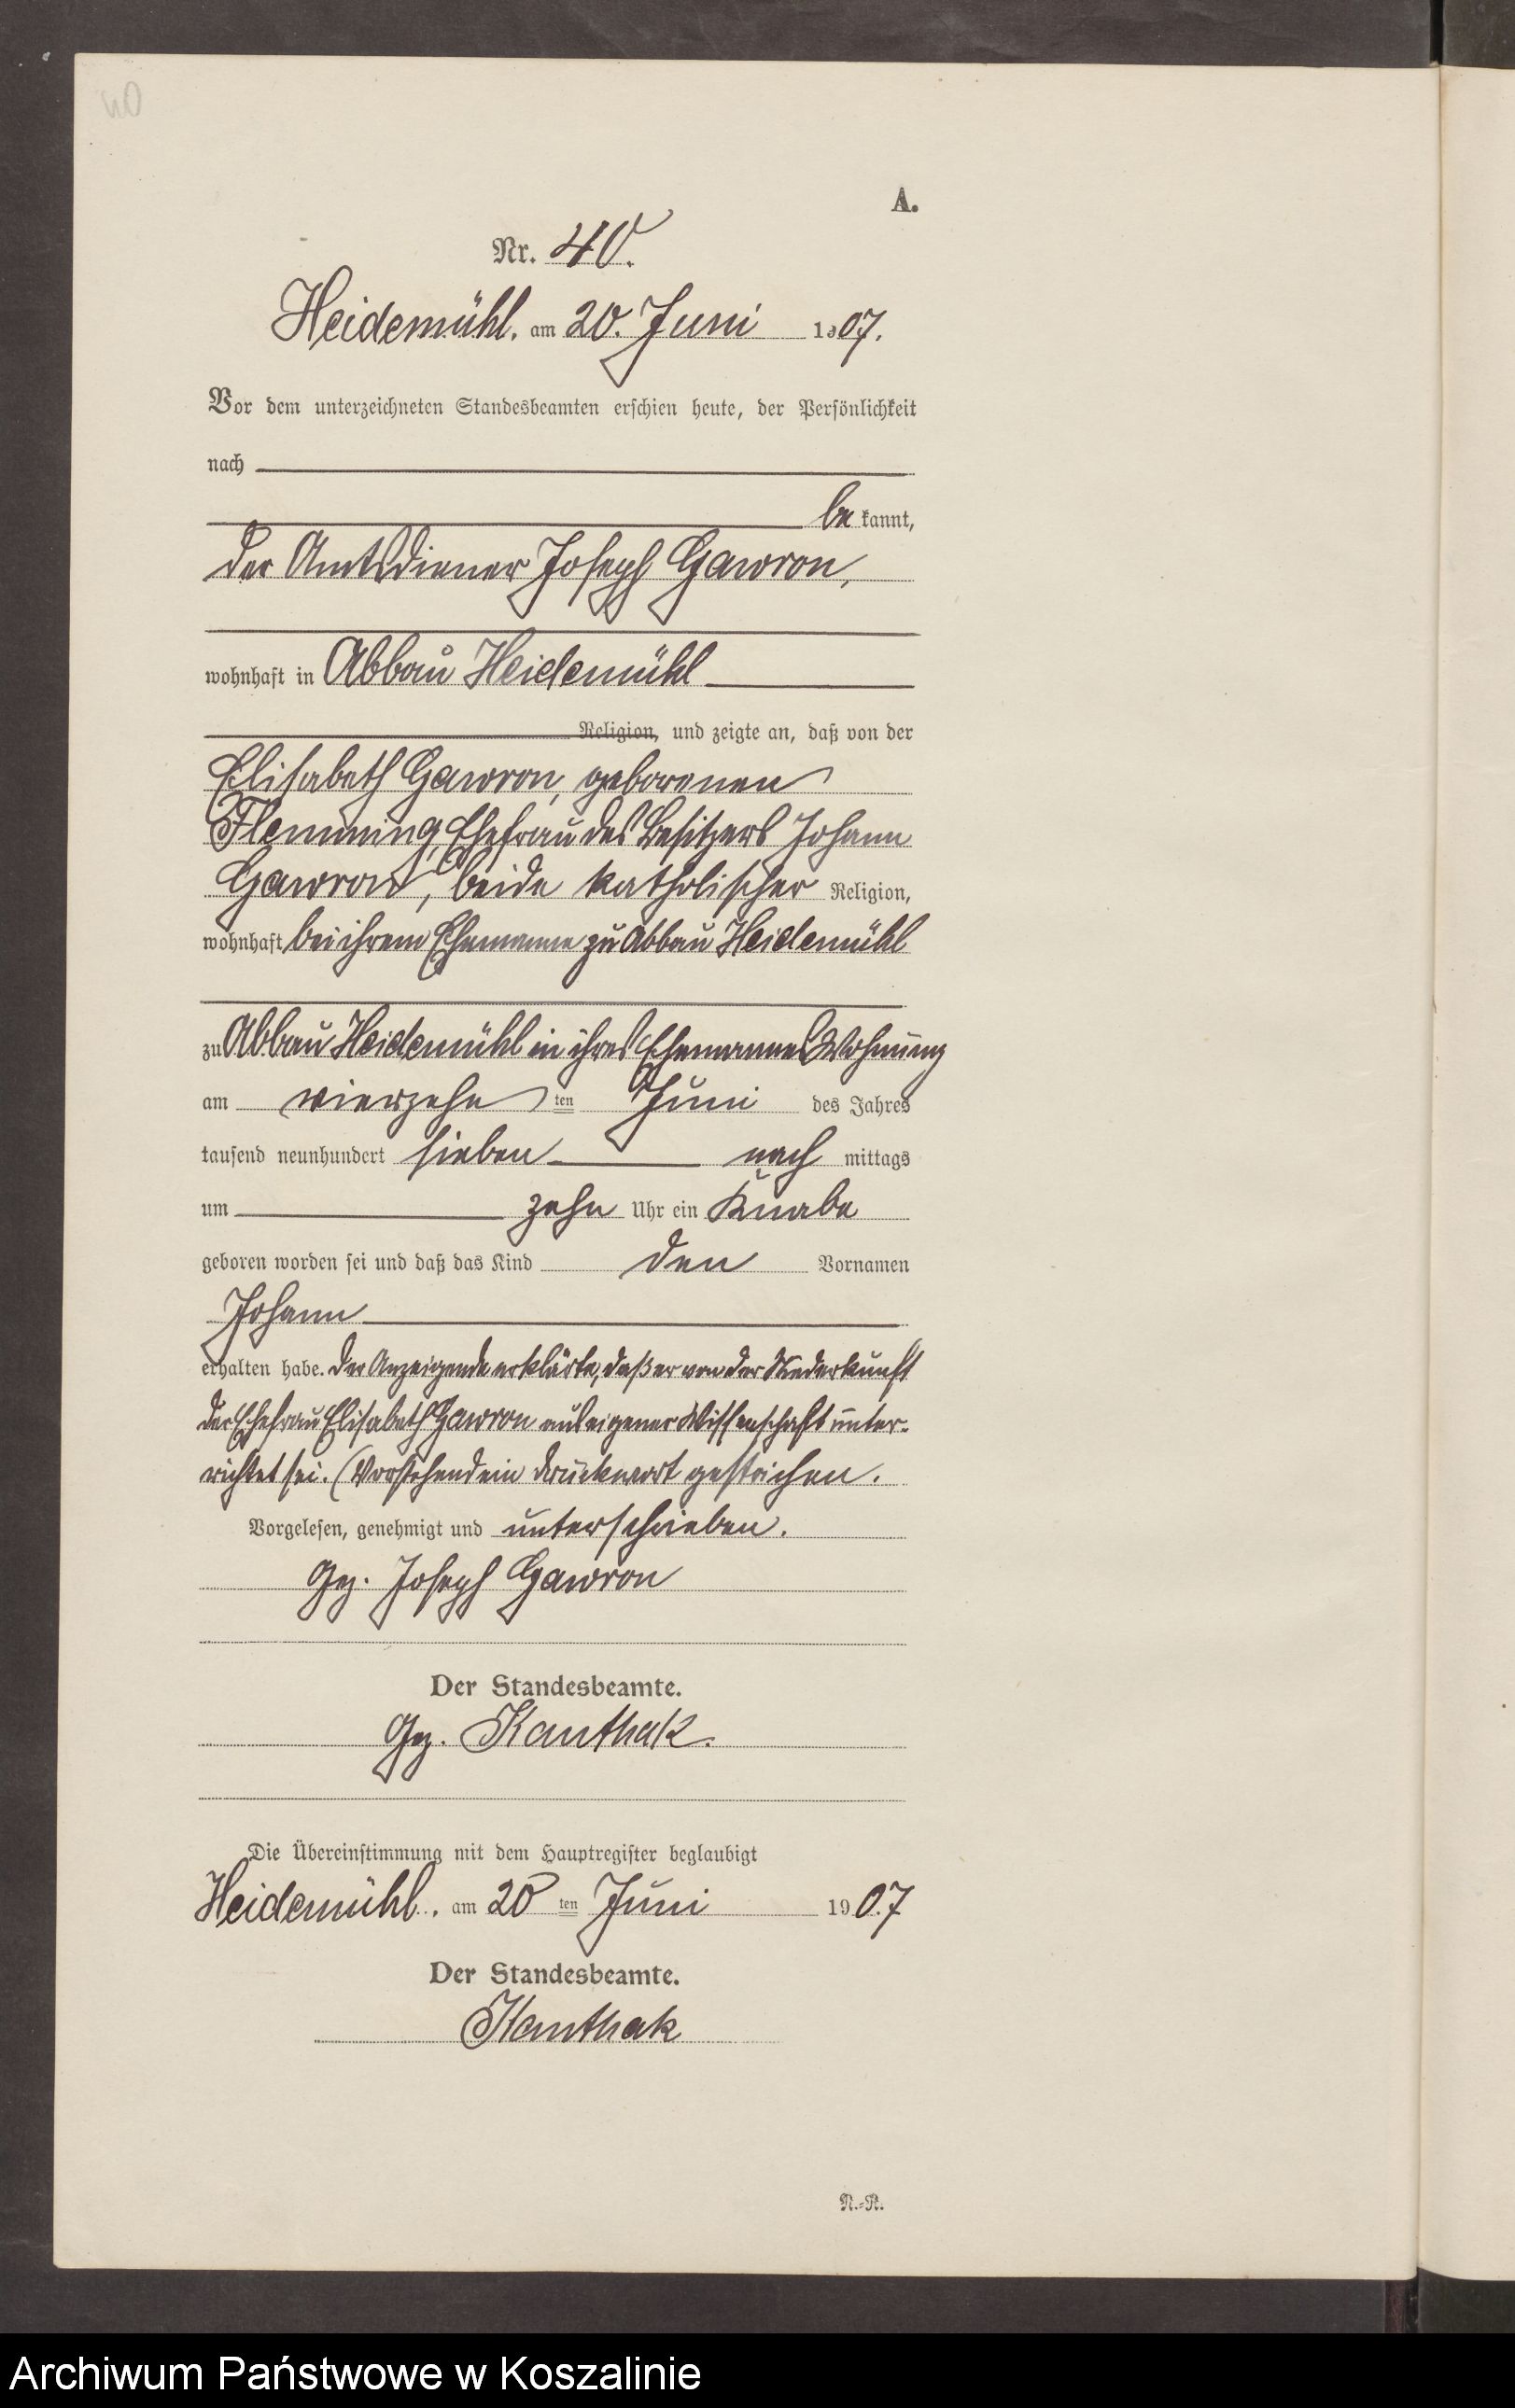 40
A.
Nr. 40.
Heidemühl, am 20. Juni 1907.
Vor dem unterzeichneten Standesbeamten erschien heute, der Persönlichkeit
nach
be kannt,
der Amtsdiener Joseph Gawron,
wohnhaft in Abbau Heidemühl
Religion, und zeigte an, daß von der
Elisabeth Gawron, geborenen
Flemming, Ehefrau des Besitzers Johann
Gawron, beide katholischer Religion,
wohnhaft bei ihrem Ehemanne zu Abbau Heidemühl
zu Abbau Heidemühl in ihres Ehemannes Wohnung
am vierzehn ten Juni des Jahres
tausend neunhundert sieben nach mittags
um zehn Uhr ein Knabe
geboren worden sei und daß das Kind den Vornamen
Johann
erhalten habe. Der Anzeigende erklärte, daß er von der Niederkunft
der Ehefrau Elisabeth Gawron aus eigener Wissenschaft unter-
richtet sei. (Vorstehend ein Druckwort gestrichen.
Vorgelesen, genehmigt und unterschrieben.
Gez. Joseph Gawron
Der Standesbeamte.
Gez. Kanthak.
Die Übereinstimmung mit dem Hauptregister beglaubigt
Heidemühl, am 20 ten Juni 1907
Der Standesbeamte.
Kanthak
N.-R.
Archiwum Państwowe w Koszalinie